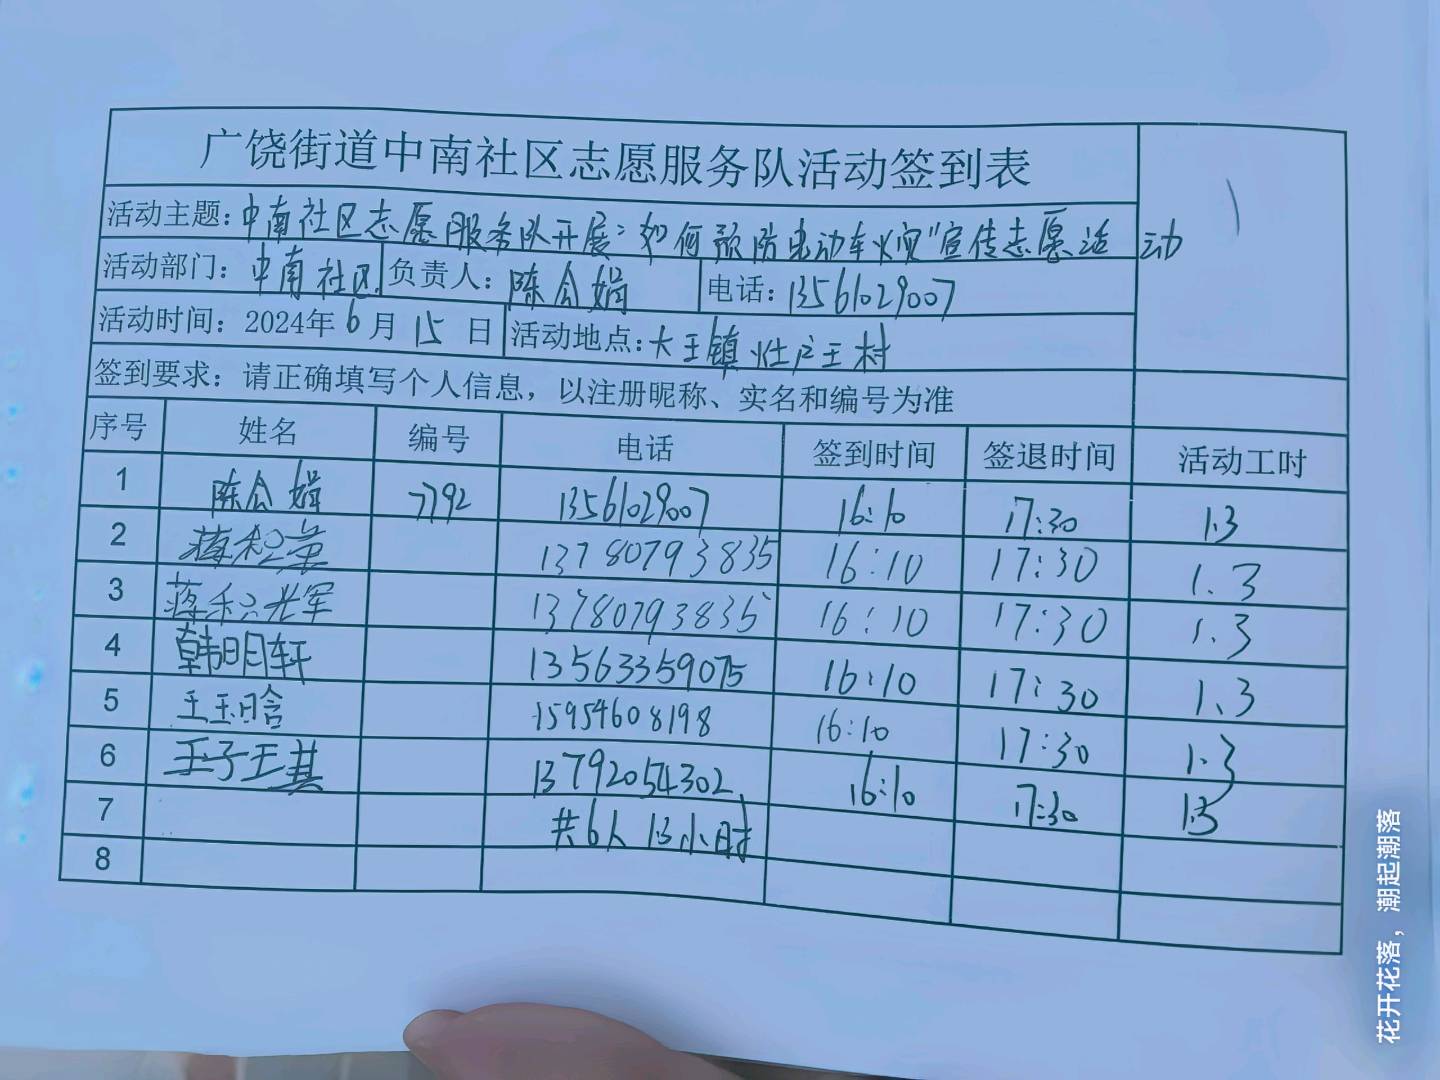 广饶街道中南社区志愿服务队活动签到表
活动主题：中南社区志愿服务队开展"如何预防电动车火灾"宣传志愿活动
活动部门：中南社区 负责人：陈会娟 电话：13561029007
活动时间：2024年6月15日 活动地点：大王镇灶户王村
签到要求：请正确填写个人信息，以注册昵称、实名和编号为准
序号 姓名 编号 电话 签到时间 签退时间 活动工时
1 陈会娟 7792 13561029007 16:10 17:30 1.3
2 13780793835 16:10 17:30 1.3
3 13780793835 16:10 17:30 1.3
4 韩明轩 13563359075 16:10 17:30 1.3
5 王玉晗 15954608198 16:10 17:30 1.3
6 王子王其 13792054302 16:10 17:30 1.3
7 共6人 1.3小时
8
花开花落，潮起潮落